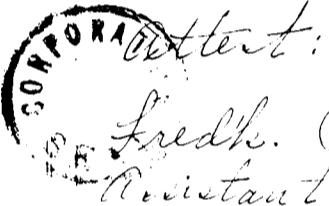 CORPORA
Attest:
Fredk. (
Assistant